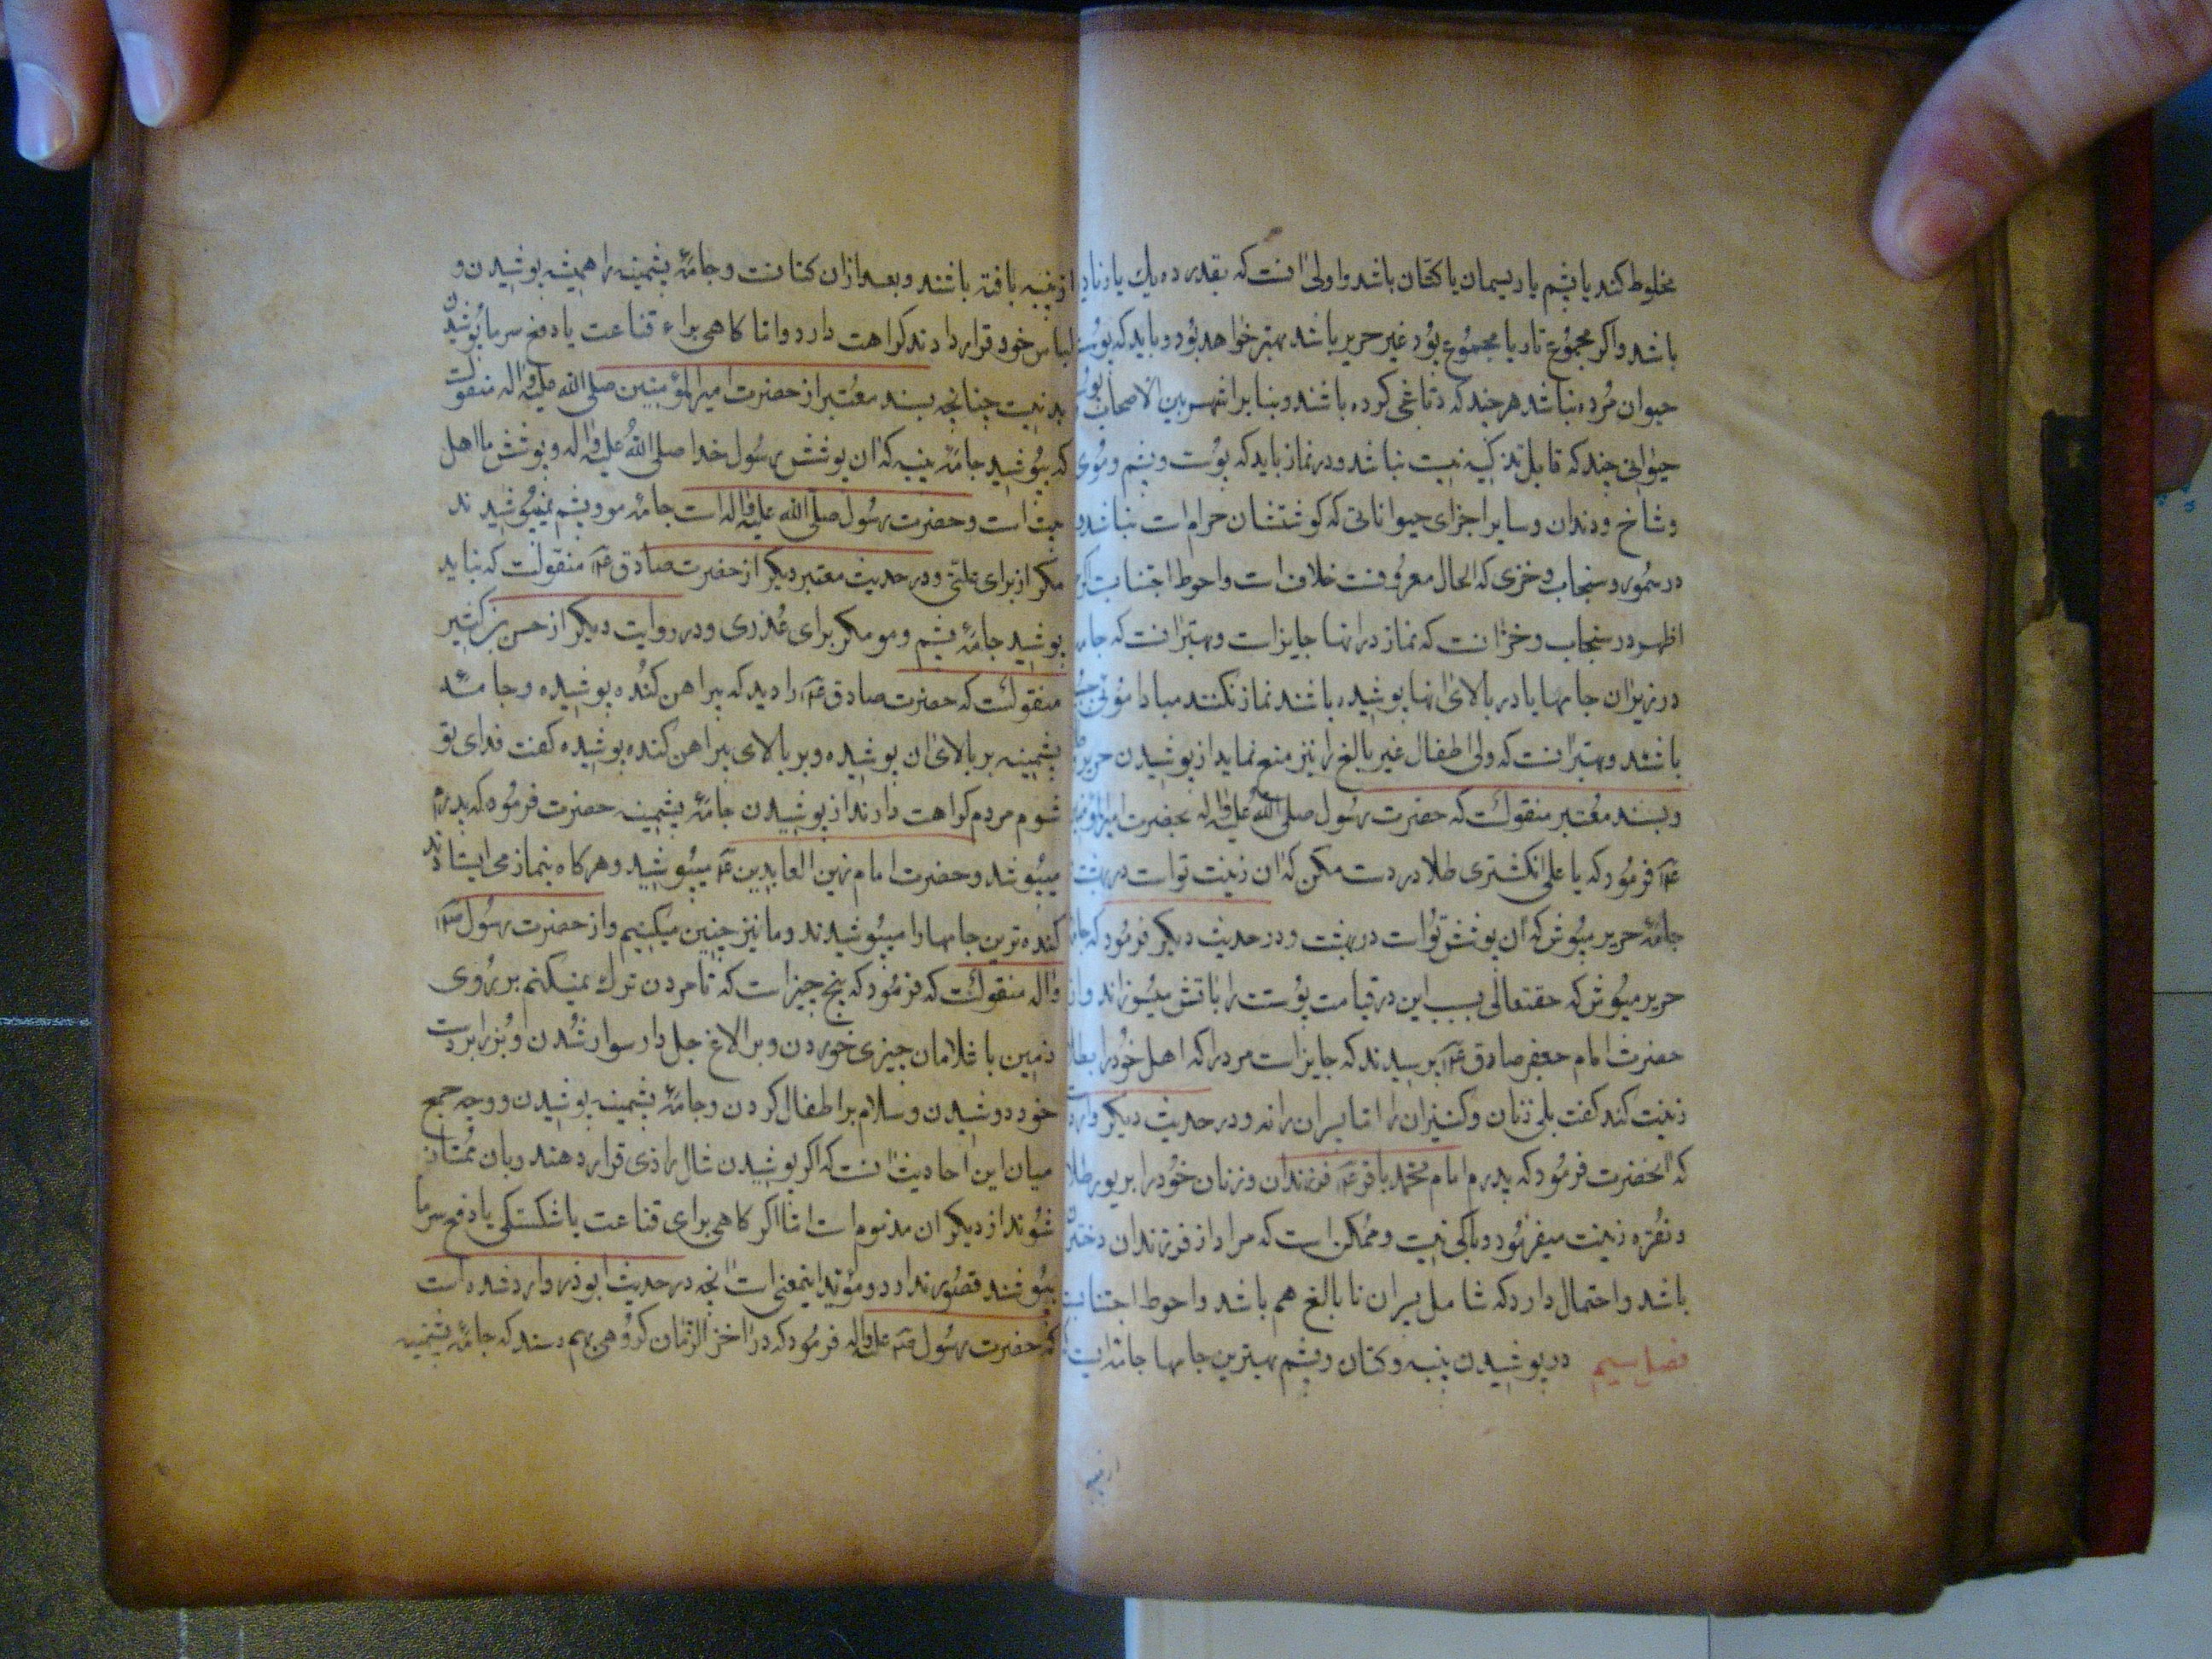 مخلوط کند یا پشم یا ریسمان یا کتان باشد و اولی آنست که بقدر ده یك یا زیاد
باشد و اکر مجموع تار یا مجموع پود غیر حریر باشد بهتر خواهد بود و باید که پوست
حیوان مرده نباشد هر چند که دباغی کرده باشند و بنابر اشهر بین الاصحاب پوست
حیوانی چند که قابل تذکیه نیست نباشد و در نماز باید که پوست و پشم و موی
و شاخ و دندان و سایر اجزای حیواناتی که کوشتشان حرام است نباشد و
در سمور و سنجاب و خزی که الحال معروفست خلافست و احوط اجتنابست اکرچه
اظهر در سنجاب و خز آنست که نماز در اینها جایز است و بهتر آنست که جامه
در زیر آن جامها یا در بالای آنها پوشیده باشند نماز نکنند مبادا موئی چسبیده
باشد و بهتر آنست که ولی اطفال غیر بالغ را نیز منع نماید از پوشیدن حریر
و بسند معتبر منقولست که حضرت رسول صلی الله علیه و اله بحضرت امیرالمؤمنین
عم فرمود که یا علی انکشتری طلا در دست مکن که آن زینت تو است در بهشت
جامۀ حریر مپوش که آن پوشش تو است در بهشت و در حدیث دیکر فرمود که جامه
حریر مپوش که حقتعالی بسبب این در قیامت پوستت را باتش میسوزاند و از
حضرت امام جعفر صادق عم پرسیدند که جایز است مرد را که اهل خود را بطلا
زینت کند کفت بلی زنان و کنیزان را اما پسران را نه و در حدیث دیکر وارد
که آنحضرت فرمود که پدرم امام محمد باقر عم فرزندان و زنان خود را بزیور طلا
و نقره زینت میفرمود و باکی نیست و ممکن است که مراد از فرزندان دختران
باشد و احتمال دارد که شامل پسران نابالغ هم باشد و احوط اجتنابست
فصل سیم در پوشیدن پنبه و کتان و پشم بهترین جامها جامه ایست که
از پنبه
از پنبه بافته باشند و بعد از ان کتانست و جامۀ پشمینه را همیشه پوشیدن و
لباس خود قرار دادند کراهت دارد و اما کاهی براء قناعت یا دفع سرما پوشیدن
بد نیست چنانچه بسند معتبر از حضرت امیر المؤمنین صلی الله علیه و اله منقولست
که بپوشید جامۀ پنبه که آن پوشش رسول خدا صلی الله علیه و اله و پوشش ما اهل
بیت است و حضرت رسول صلی الله علیه و اله است جامۀ مو و پشم نمیپوشیدند
مکر از برای علتی و در حدیث معتبر دیکر از حضرت صادق عم منقولست که نباید
پوشید جامۀ پشم و مو مکر برای عذری و در روایت دیکر از حسن بن کثیر
منقولست که حضرت صادق عم را دید که پیراهن کنده پوشیده و جامۀ
پشمینه بر بالای آن پوشیده و بر بالای پیراهن کنده پوشیده کفت فدای تو
شوم مردم کراهت دارند از پوشیدن جامۀ پشمینه حضرت فرمود که پدرم
میپوشد و حضرت امام زین العابدین عم میپوشید و هر کاه بنماز می ایستادند
کنده ترین جامها را میپوشیدند و ما نیز چنین میکنیم و از حضرت رسول صلعم
و اله منقولست که فرمود که پنج چیز است که تا مردن ترك نمیکنم بر روی
زمین با غلامان چیزی خوردن و بر الاغ جل دار سوار شدن و بز را بدست
خود دوشیدن و سلام بر اطفال کردن و جامۀ پشمینه پوشیدن و وجه جمع
میان این احادیث آنست که اکر پوشیدن شال را زی قرار دهند و بان ممتاز
شوند از دیکران مذموم است اما اکر کاهی برای قناعت یا شکستکی یا دفع سرما
بپوشند قصوری ندارد و مؤید اینمعنی است آنچه در حدیث ابوذر وارد شده است
که حضرت رسول صلعم علیه و اله فرمود که در اخر الزمان کروهی بهم رسند که جامۀ پشمینه